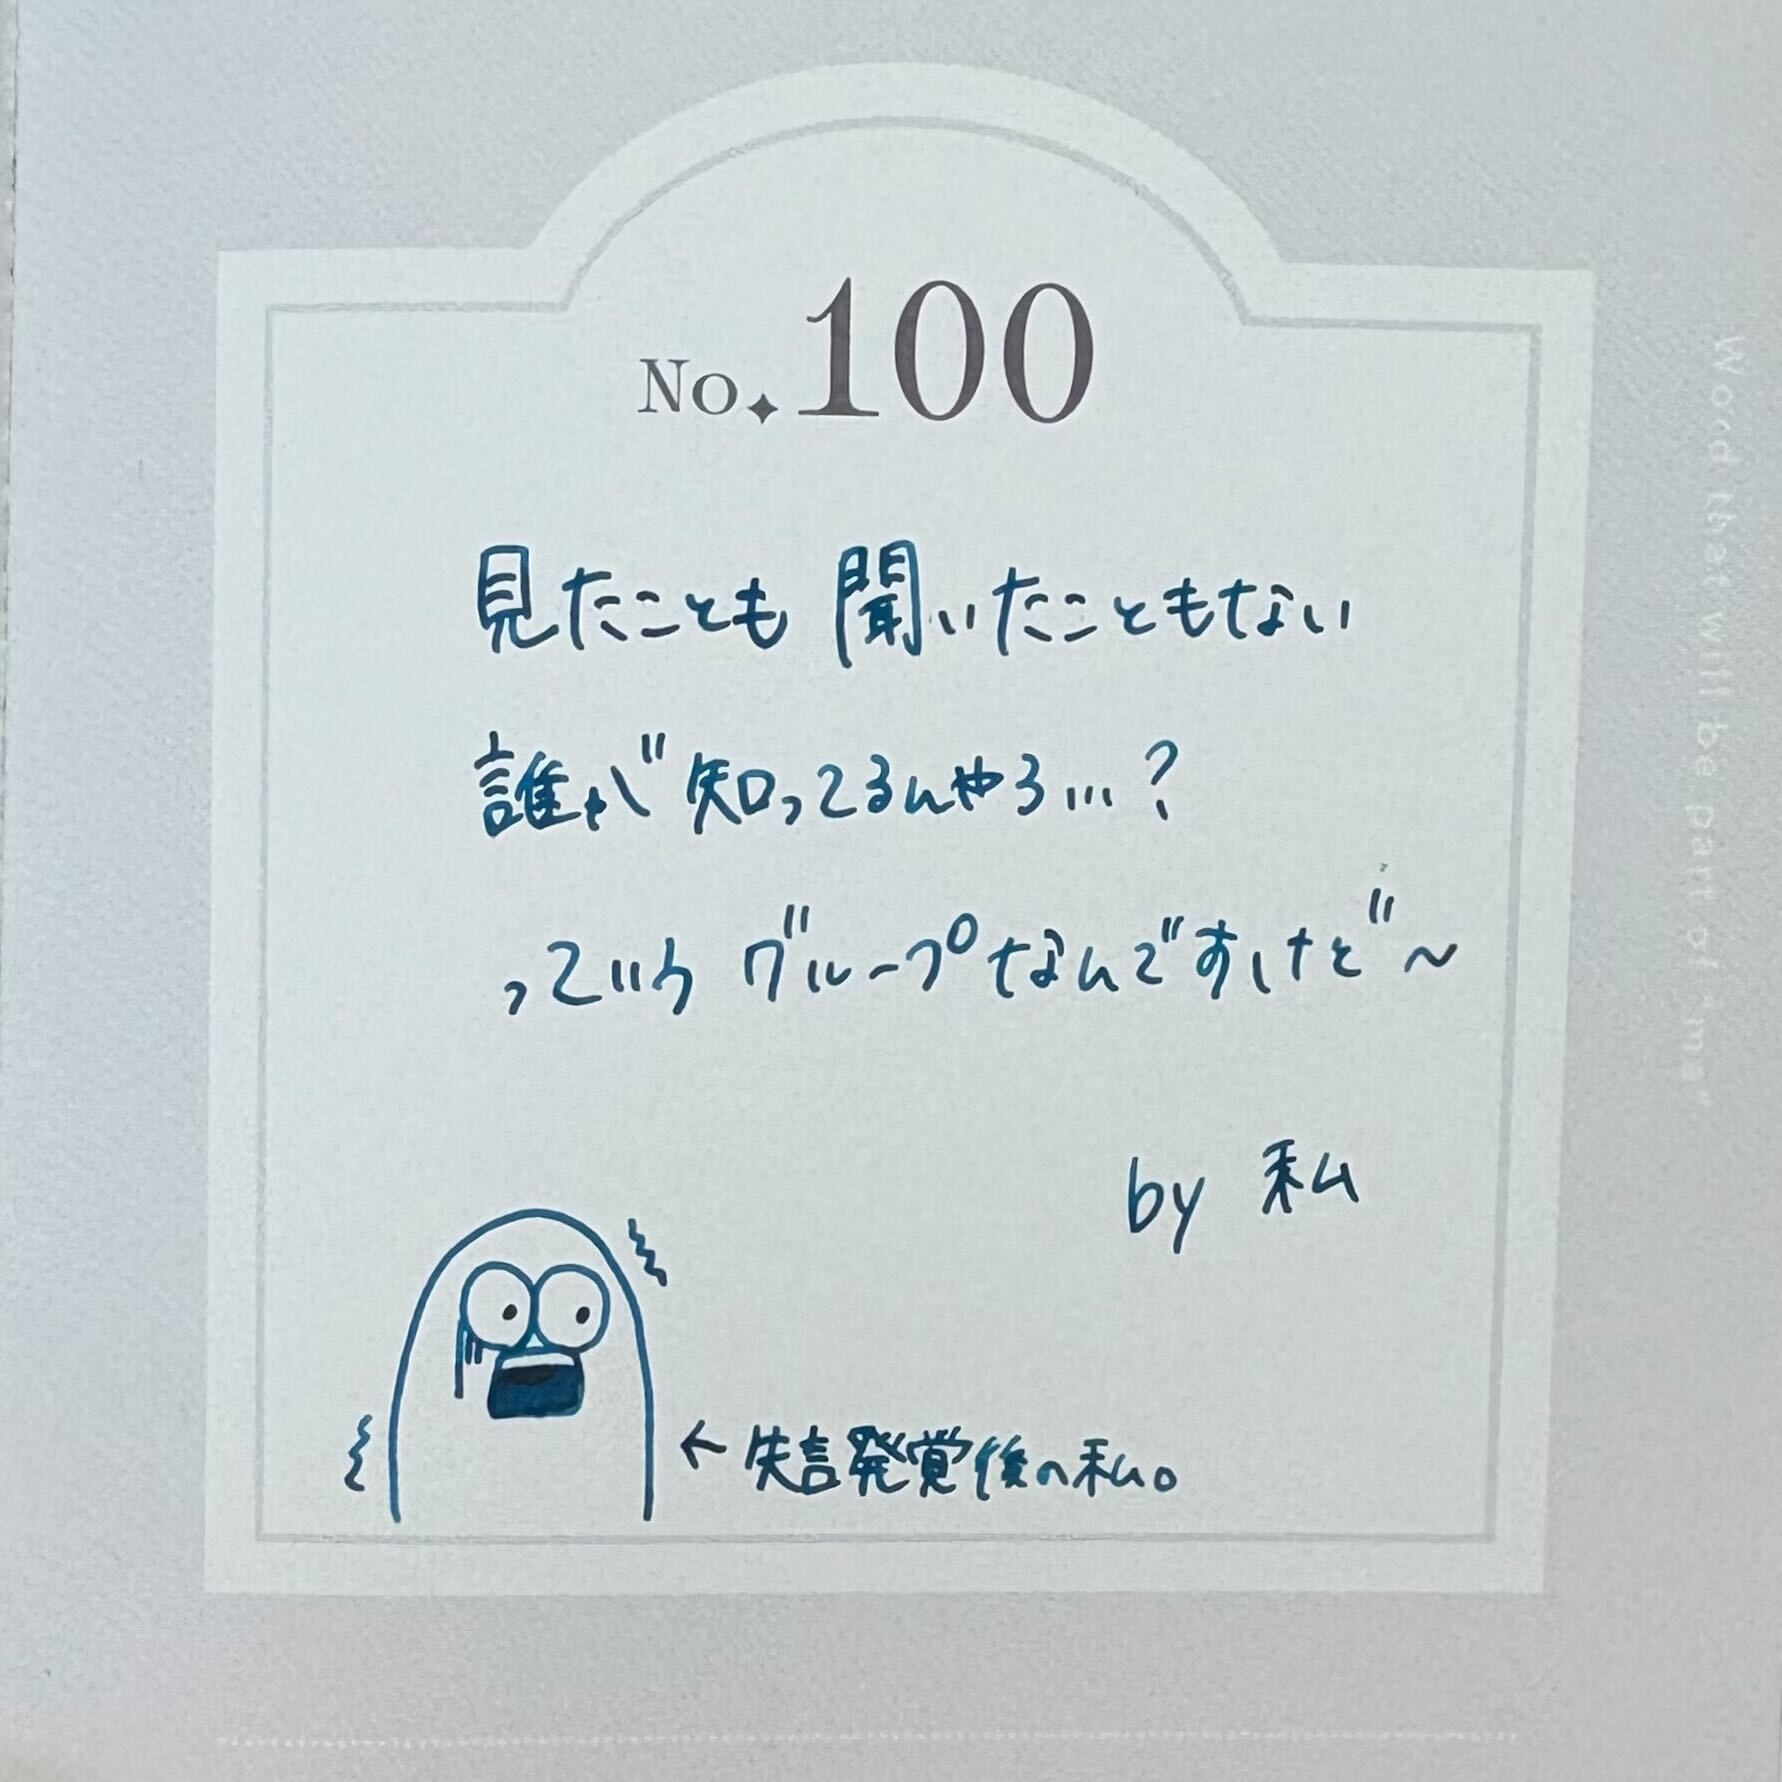 No.100
見たことも 聞いたこともない
誰が知ってるんやろ…?
っていう グループなんですけど〜
by 私
←失言発覚後の私。
Word that will be part of "me"